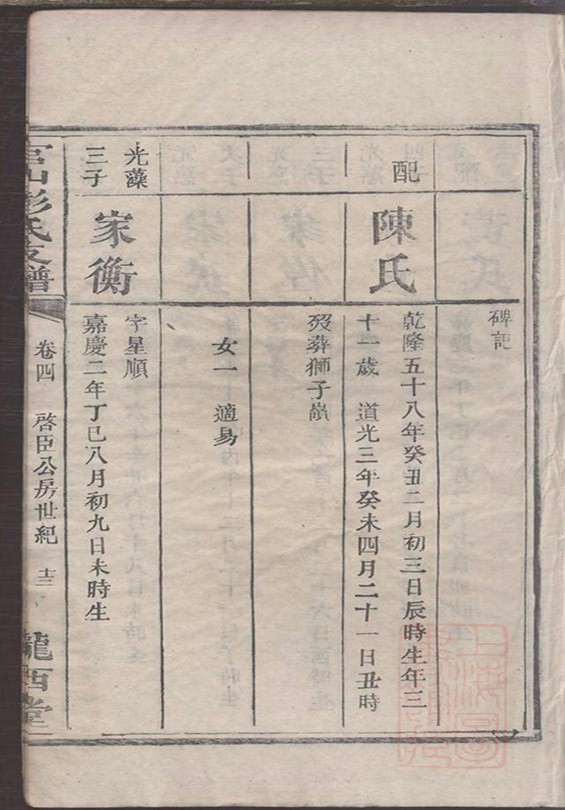 碑記
配
陳氏
乾隆五十八年癸丑二月初三日辰時生年三
十一歲 道光三年癸未四月二十一日丑時
歿葬獅子嶺
女一 適易
光藻
三子
家衡
字星順
嘉慶二年丁巳八月初九日未時生
官山彭氏支譜
卷四 啓臣公房世紀 十三
隴西堂